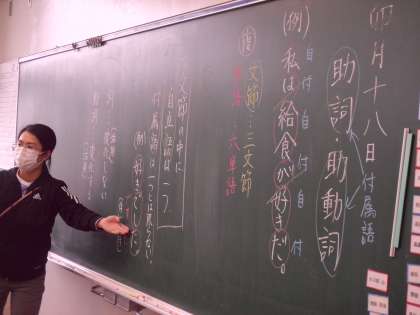 卯月十八日
付属語
助詞・助動詞
自付自付自付
(例)私は給食が好きだ。
文節…三文節
単語…六単語
文節の中に
自立語は一つ
付属語は一つとは限らない。
(例)好きでした
変化しない
変化する
adidas